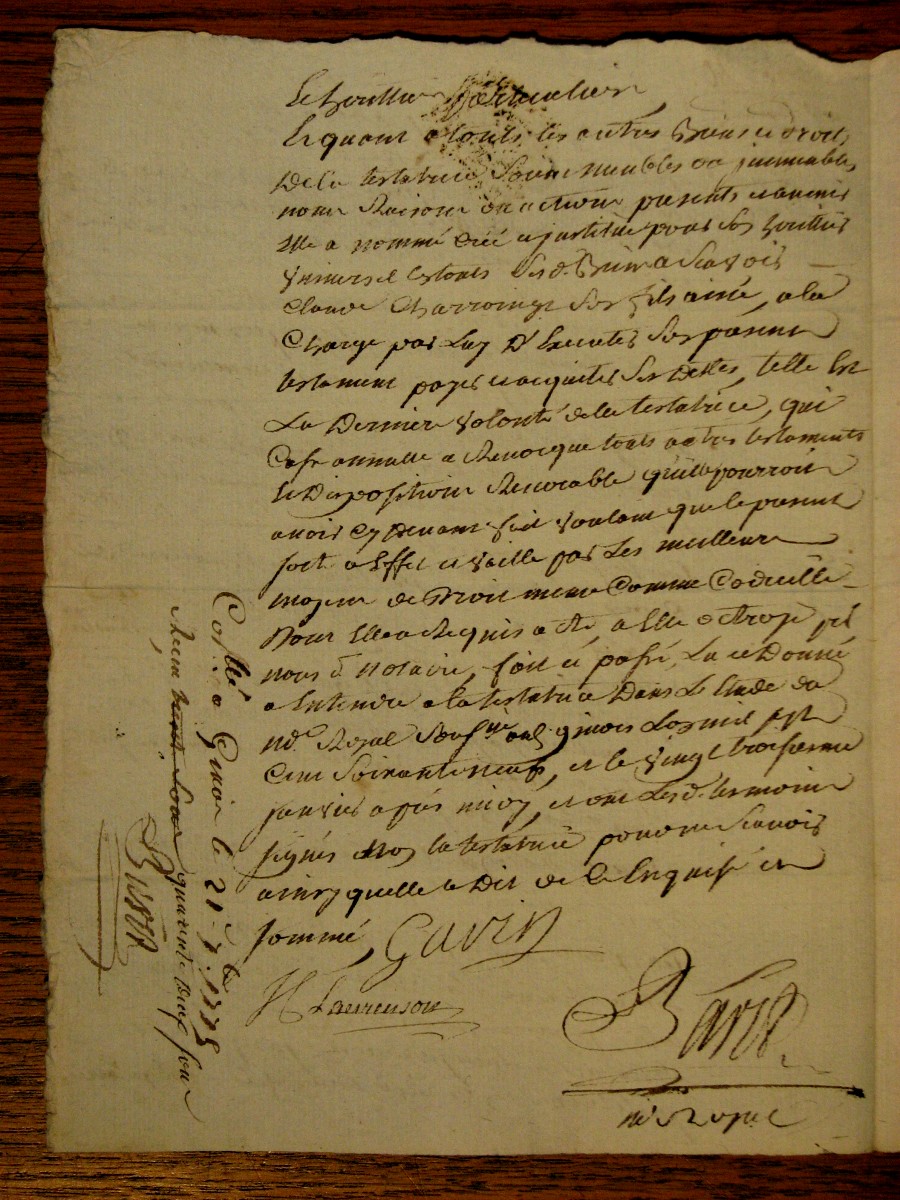 Et quant a touts les autres Biens et droits
De la testatrice Soient meubles ou immeubles,
noms Raisons ou actions presents et avenir
Elle a nommé créé et institué pour Son heritier
Universel et touts Ses d. Biens a Scavoir
Claude Son fils ainé, a la
Charge par Luy D'Executer Son present
testament payer et acquiter Ses Dettes, telle Est
La Derniere volonté de la testatrice, qui
Casse annulle et Revocque touts autres testaments
et Disposition Revocable qu'elle pourroit
avoir cy Devant fait voulant que le present
sorte a Effet et vaille par Les meilleurs
moyens de Droit meme Comme Codicille
Dont Elle a Requis acte, a Elle octroyé par
nous d. notaire, fait et passé, Lu et Donné
a Entendre a la testatrice Dans L'Etude du
no.e Royal Sousné L'an mil sept
Cent Soixante neuf, et le vingt troisieme
janvier après midy, et ont Les d. temoins
signés non la testatrice pour ne Scavoir
ainsy quelle a Dit de ce Enquise et
sommé, Gavin
Bavid
no.e Royal
Collé a le 21e 1775
Recu quarante Deux sous